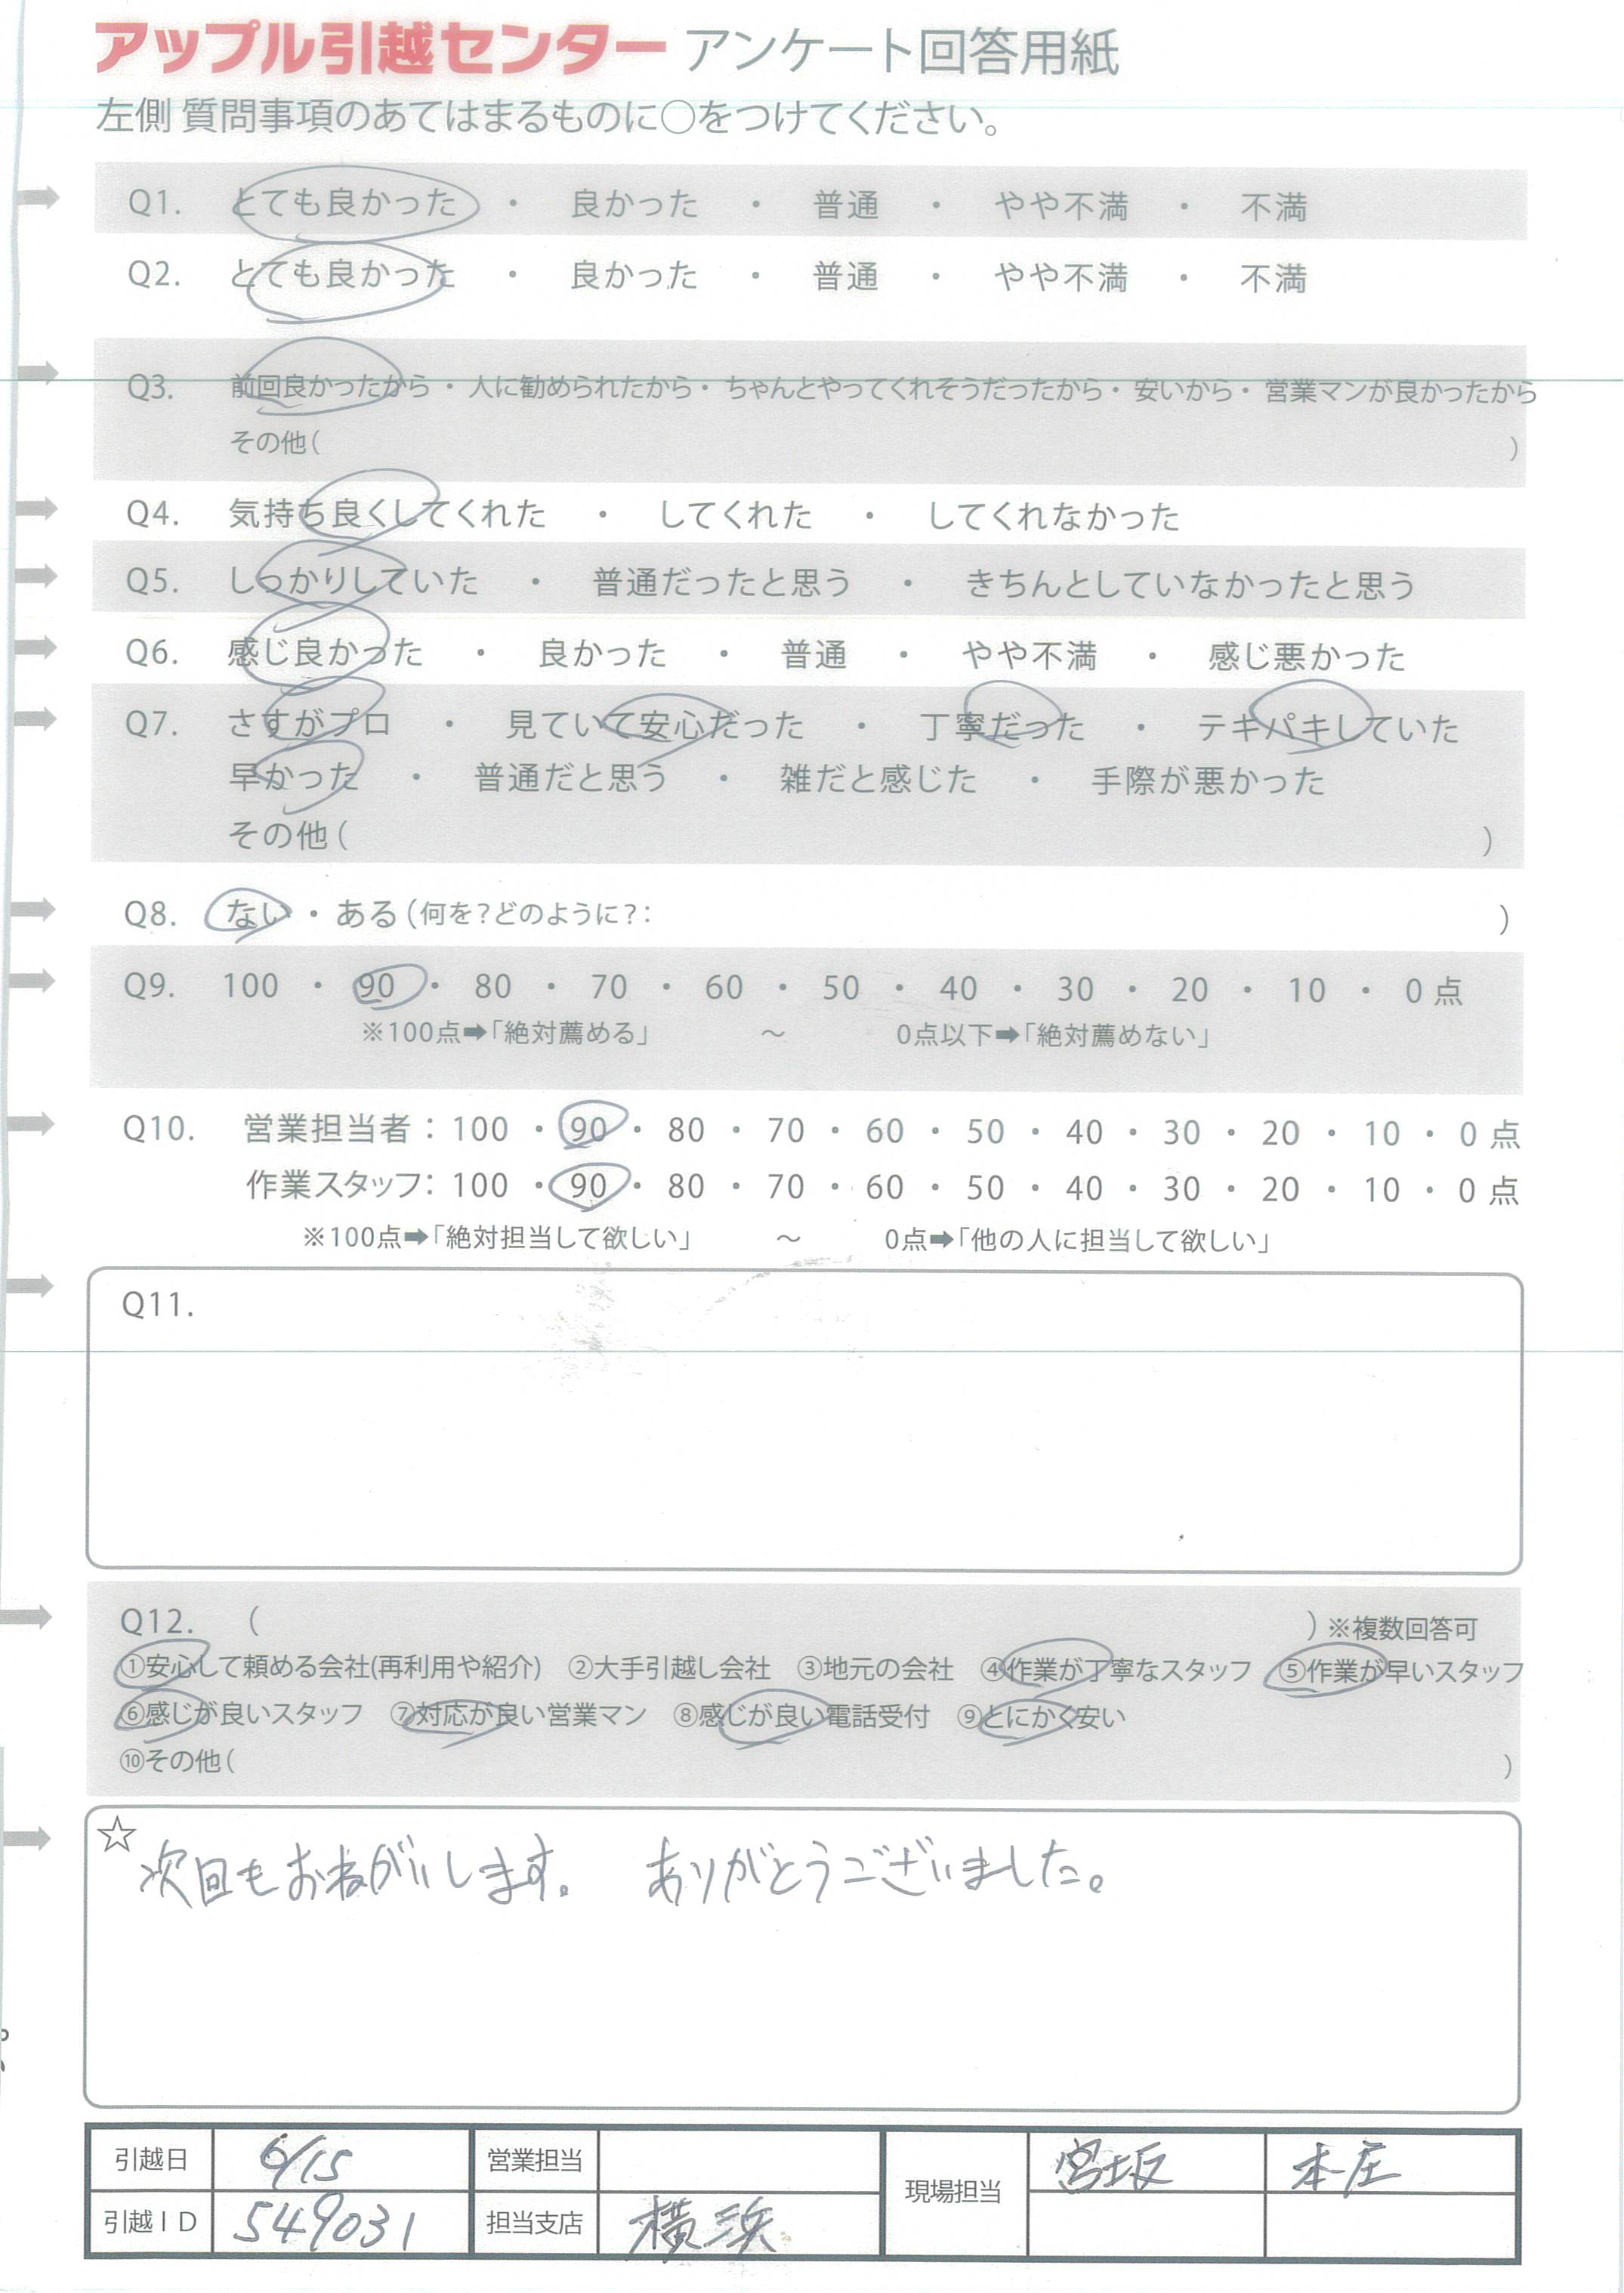 アップル引越センター アンケート回答用紙
左側 質問事項のあてはまるものに○をつけてください。
Q1. とても良かった ・ 良かった ・ 普通 ・ やや不満 ・ 不満
Q2. とても良かった ・ 良かった ・ 普通 ・ やや不満 ・ 不満
Q3. 前回良かったから ・ 人に勧められたから ・ ちゃんとやってくれそうだったから ・ 安いから ・ 営業マンが良かったから
その他( )
Q4. 気持ち良くしてくれた ・ してくれた ・ してくれなかった
Q5. しっかりしていた ・ 普通だったと思う ・ きちんとしていなかったと思う
Q6. 感じ良かった ・ 良かった ・ 普通 ・ やや不満 ・ 感じ悪かった
Q7. さすがプロ ・ 見ていて安心だった ・ 丁寧だった ・ テキパキしていた
早かった ・ 普通だと思う ・ 雑だと感じた ・ 手際が悪かった
その他( )
Q8. ない ・ ある(何を?どのように?: )
Q9. 100 ・ 90 ・ 80 ・ 70 ・ 60 ・ 50 ・ 40 ・ 30 ・ 20 ・ 10 ・ 0 点
※100点➡「絶対薦める」 ～ 0点以下➡「絶対薦めない」
Q10. 営業担当者：100 ・ 90 ・ 80 ・ 70 ・ 60 ・ 50 ・ 40 ・ 30 ・ 20 ・ 10 ・ 0 点
作業スタッフ：100 ・ 90 ・ 80 ・ 70 ・ 60 ・ 50 ・ 40 ・ 30 ・ 20 ・ 10 ・ 0 点
※100点➡「絶対担当して欲しい」 ～ 0点➡「他の人に担当して欲しい」
Q11.
Q12. ( ) ※複数回答可
①安心して頼める会社(再利用や紹介) ②大手引越し会社 ③地元の会社 ④作業が丁寧なスタッフ ⑤作業が早いスタッフ
⑥感じが良いスタッフ ⑦対応が良い営業マン ⑧感じが良い電話受付 ⑨とにかく安い
⑩その他( )
☆
次回もおねがいします。 ありがとうございました。
引越日 6/15 営業担当 現場担当 宮坂 本庄
引越ＩＤ 549031 担当支店 横浜